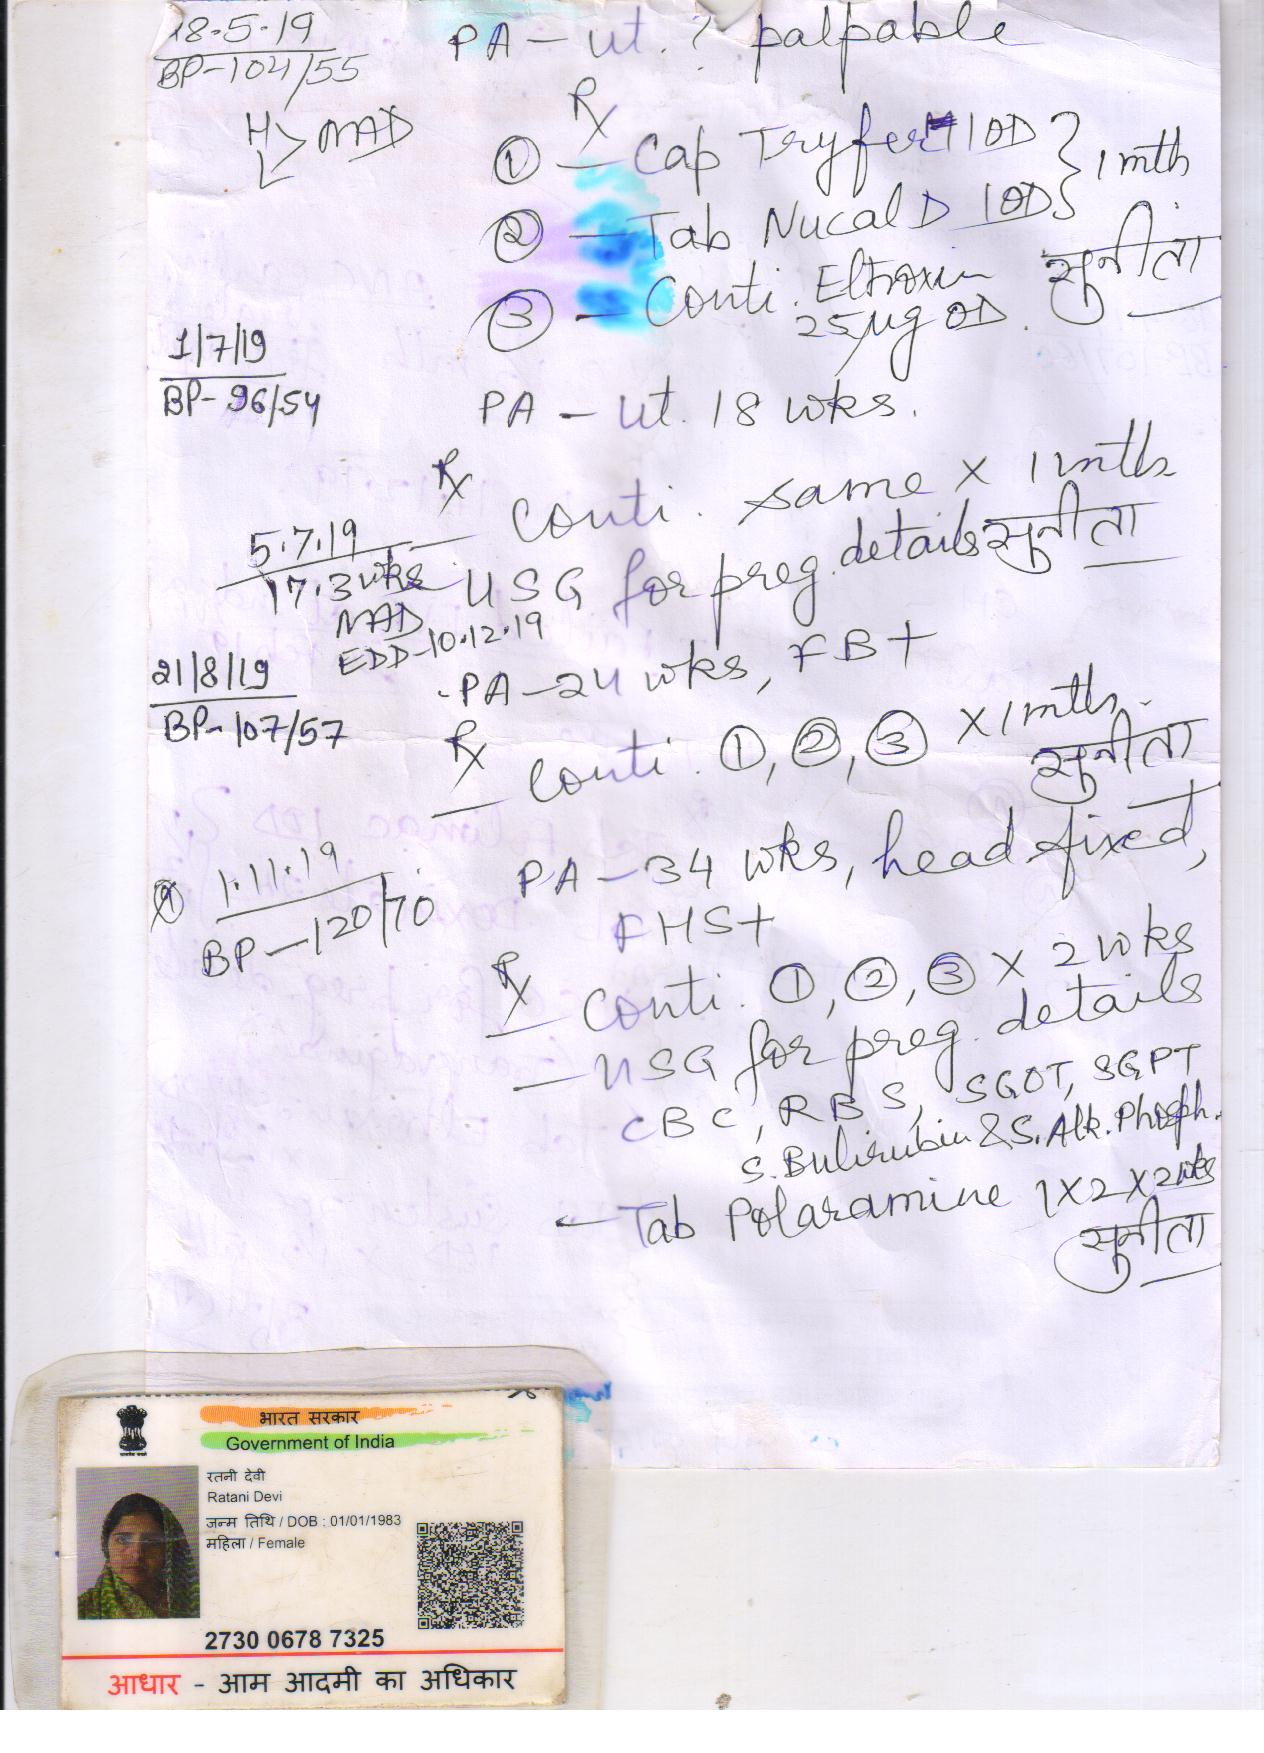 18.5.19
BP-104/55
PA - ut. ? palpable
H
L > NAD
Rx
① - Cap Tryfer 1 OD } 1 mth
② - Tab Nucal D 1 OD
③ - Conti. Eltroxin
25 µg OD.
सुनीता
1/7/19
BP- 96/54
PA - ut. 18 wks.
Rx
Conti. same x 1 mth
- USG for preg. details सुनीता
5.7.19
17.3 wks
NAD
EDD-10.12.19
21/8/19
BP- 107/57
PA - 24 wks, FB+
Rx
Conti. ①, ②, ③ x 1 mth.
सुनीता
1.11.19
BP - 120/70
PA - 34 wks, head fixed,
FHS+
Rx
Conti. ①, ②, ③ x 2 wks
- USG for preg. details
CBC, RBS, SGOT, SGPT
S. Bulirubin & S. Alk. Phosph.
- Tab Polaramine 1 x 2 x 2 wks
सुनीता
भारत सरकार
Government of India
रतनी देवी
Ratani Devi
जन्म तिथि / DOB : 01/01/1983
महिला / Female
2730 0678 7325
आधार - आम आदमी का अधिकार